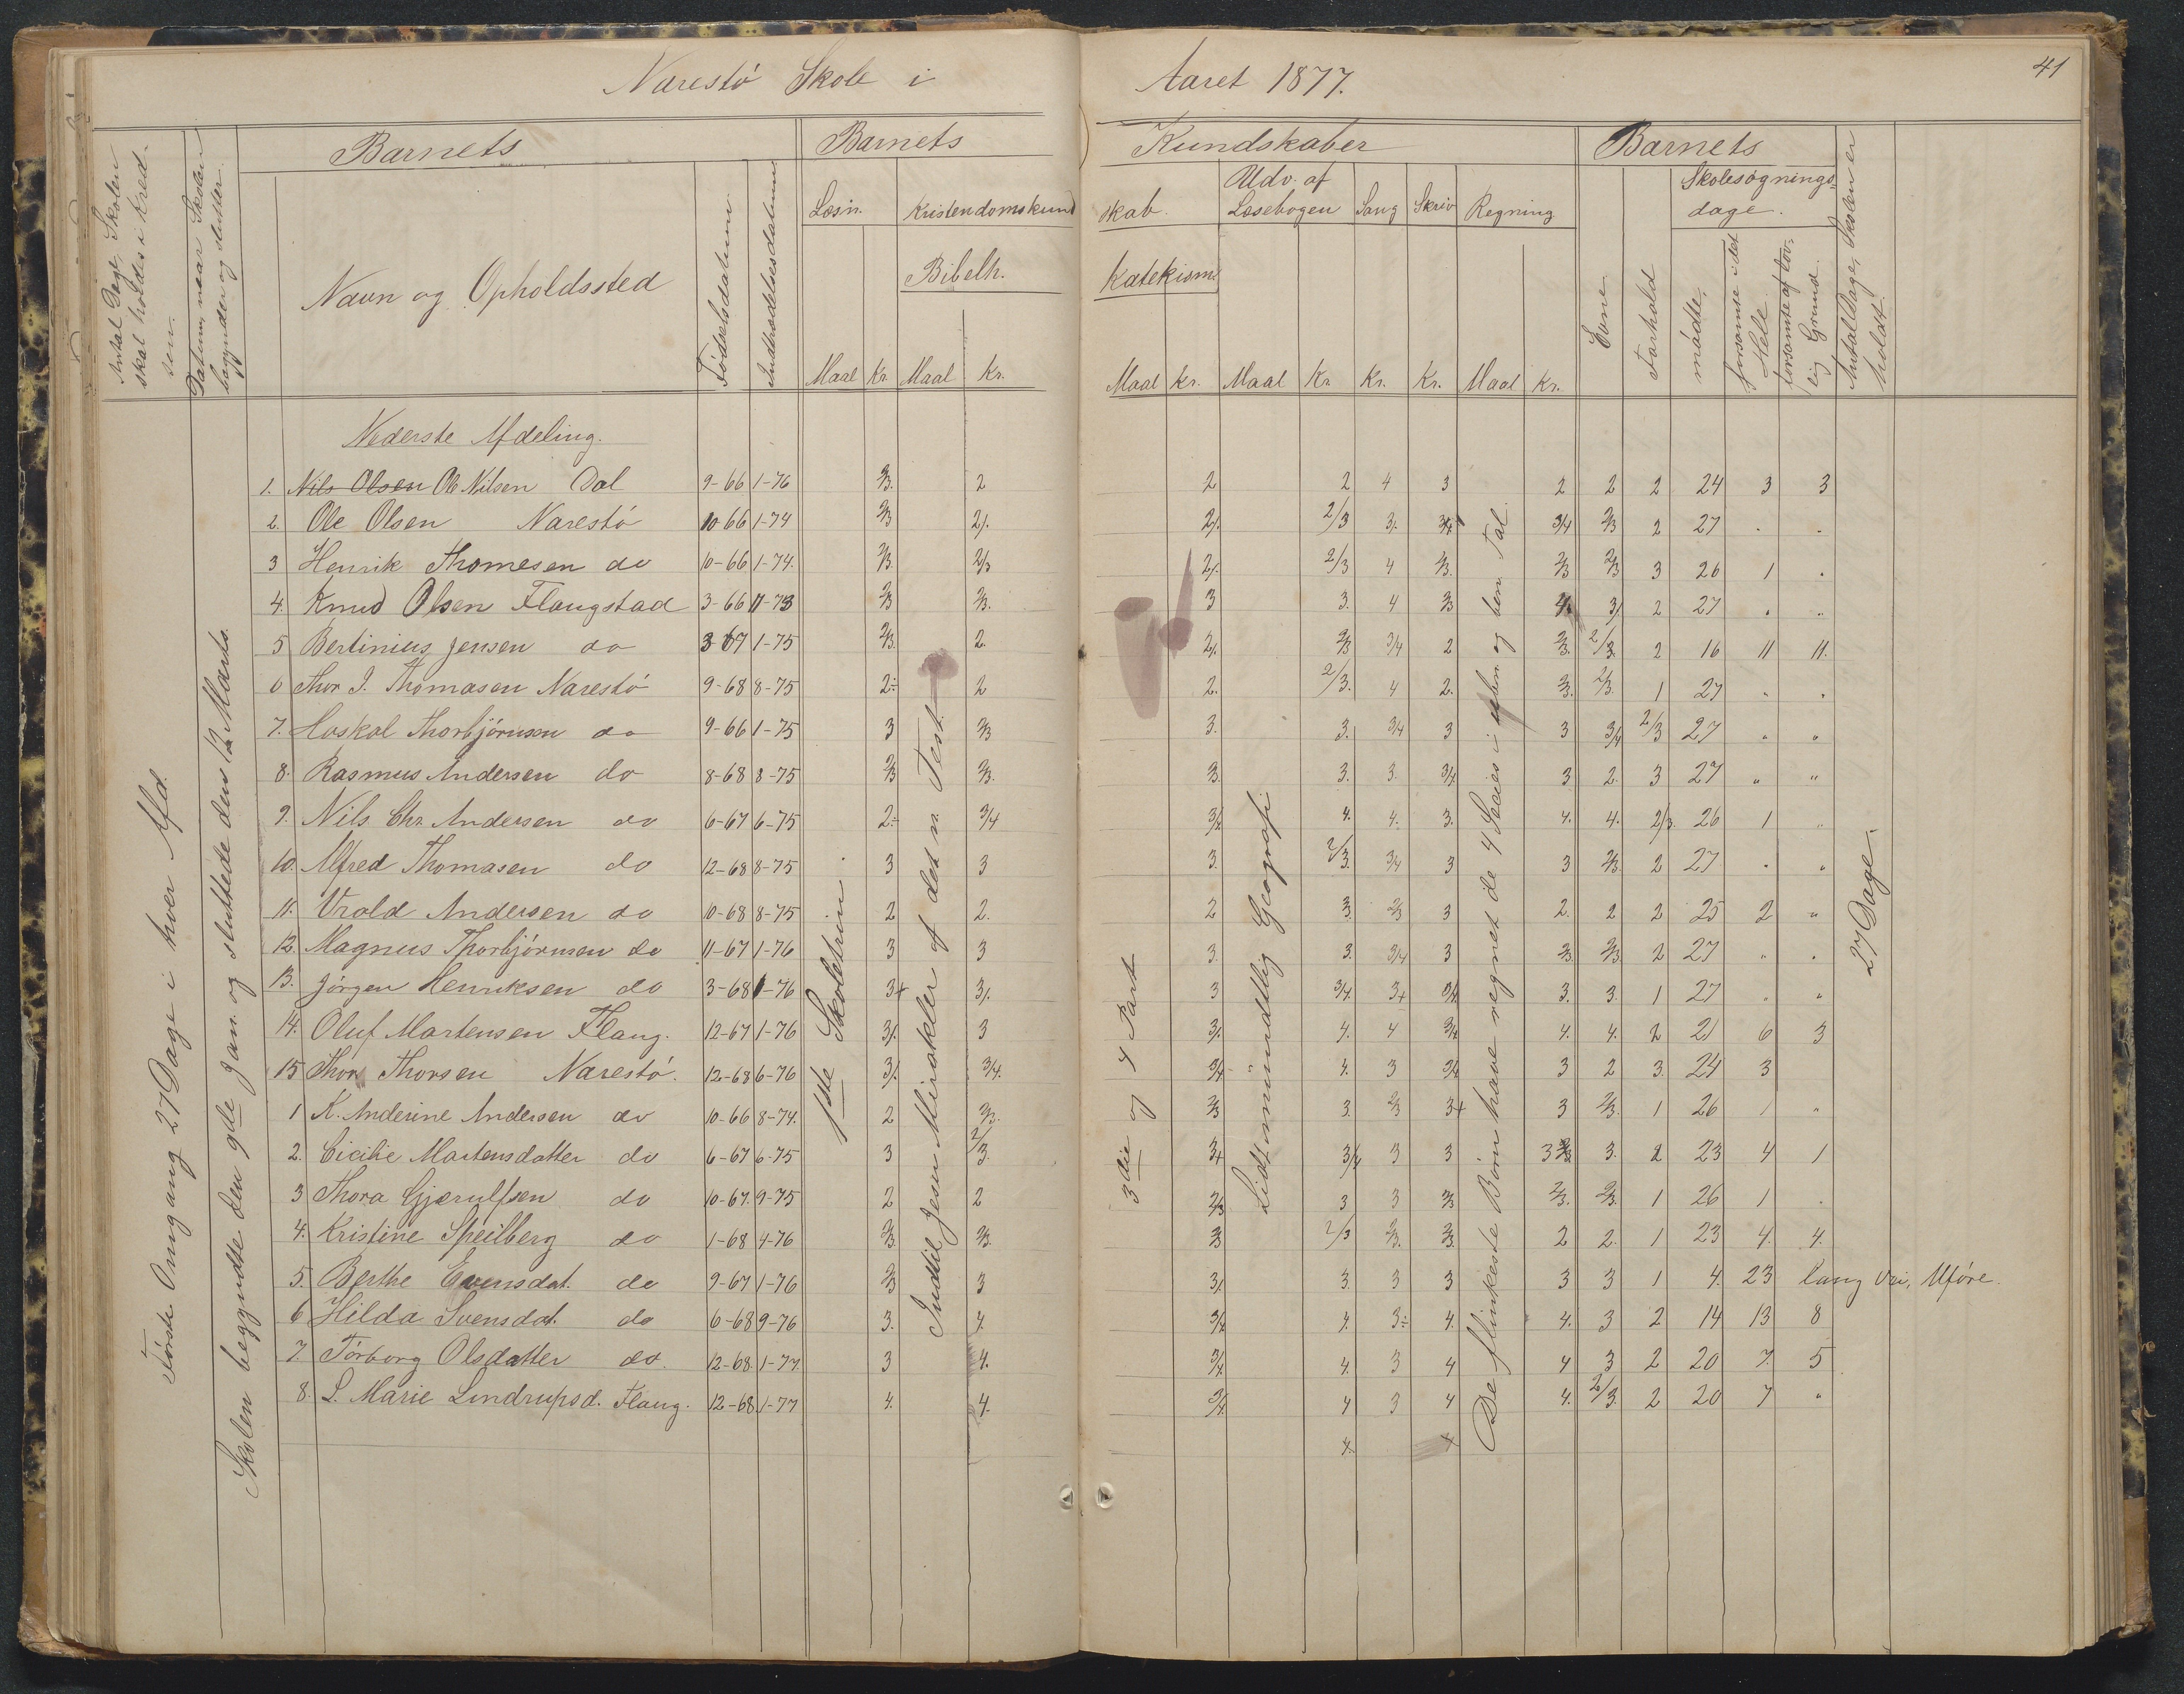 Narestø Skole i Aaret 1877.
41
Antal Dage, Skolen skal holdes i Kredsen.
Datum, naar Skolen begynder og slutter.
Barnets
Navn og Opholdssted
Fødselsdatum
Indtrædelsesdatum
Barnets Kundskaber
Læsn. Kristendomskundskab. Udv. af Læsebogen Sang Skriv Regning
Bibelh. Katekism.
Maal Kr. Maal Kr. Maal Kr. Maal Kr Kr. Kr. Maal Kr.
Barnets
Evne
Forhold
Skolesøgningsdage.
mødte.
forsømte i det Hele.
forsømte af lovlig Grund.
Antal Dage, Skolen er holdt.
Første Omgang 27 Dage i hver Afd.
Skolen begyndte den 9de Jan. og sluttede den 12 Marts.
1ste Skoletrin.
Indtil Jesu Mirakler af det n. Test.
3die og 4 Part
Lidt mundtlig Geografi
De flinkeste Børn have regnet de 4 Species i uben og ben Tal.
27 Dage.
Nederste Afdeling.
1. Nils Olsen Ole Nilsen Dal 9-66 1-76 2/3. 2 2 2 4 3 2 2 2 24 3 3
2. Ole Olsen Narestø 10-66 1-74 2/3 2/. 2/. 2/3 3/. 3/4 3/4 2/3 2 27 . .
3 Henrik Thomesen do 10-66 1-74. 2/3. 2/3 2/. 2/3 4 2/3. 2/3 2/3 3 26 1 .
4. Knud Olsen Flangstad 3-66 11-73 2/3 2/3. 3 3. 4 2/3 4. 3/. 2 27 " "
5 Bertinius Jensen do 3 67 1-75 2/3. 2. 2/. 2/3 3/4 2 2/3. 2/3. 2 16 11 11.
6 Thor J. Thomasen Narestø 9-68 8-75 2÷ 2 2. 2/3. 4 2. 2/3. 2/3. 1 27 " "
7. Haskal Thorbjørnsen do 9-66 1-75 3 2/3 3. 3. 3/4 3 3 3/4 2/3 27 " "
8. Rasmus Andersen do 8-68 8-75 2/3 2/3. 3. 3. 3. 3/4 3 2. 3 27 " "
9. Nils Chr. Andersen do 6-67 6-75 2÷ 3/4 3/4 4. 4. 3. 4. 4. 2/3. 26 1 "
10. Alfred Thomasen do 12-68 8-75 3 3 3. 2/3. 3/4 3 3 2/3. 2 27 " "
11. Vrold Andersen do 10-68 8-75 2 2. 2 3. 2/3 3 2. 2 2 25 2 "
12. Magnus Thorbjørnsen do 11-67 1-76 3 3 3. 3. 3/4 3 2/3. 2/3. 2 27 " .
13. Jørgen Henriksen do 3-68 1-76 3+ 3/. 3 3/4. 3+ 3/4 3. 3. 1 27 " "
14. Oluf Martensen Flang. 12-67 1-76 3/. 3 3/. 4. 4 3/4 4. 4. 2 21 6 3
15 Thor Thorsen Narestø. 12-68 6-76 3/. 3/4. 3/4 4. 3 3/4 3 2 3. 24 3
1 K. Anderine Andersen do 10-66 8-74. 2 2/3. 2/3 3. 2/3 3+ 3 2/3. 1 26 1 "
2. Cicilie Martensdatter do 6-67 6-75 3 2/3 3+ 3/4 3 3 3 3. 2 23 4 1
3 Thora Gjerulfsen do 10-67. 9-75 2 2 2/3 3 3 2/3 2/3. 2/3. 1 26 1 .
4. Kristine Speilberg do 1-68 4-76 2/3. 2/3. 2/3 2/3 2/3. 2/3. 2 2. 1 23 4. 4.
5. Berthe Evensdat. do 9-67 1-76 2/3 3 3/. 3. 3 3 3 3 1 4. 23 lang Vei, Uføre.
6 Hilda Svensdat. do 6-68 9-76 3. 4. 3/4 4. 3÷ 4. 4. 3 2 14 13 8
7. Torborg Olsdatter do. 12-68. 1-77. 3 4. 3/4 4. 3 4 4 3 2 20 7. 5
8. L. Marie Lindrupsd. Flang. 12-68. 1-77 4. 4. 3/4. 4 3 4 4. 2/3. 2 20 7 "